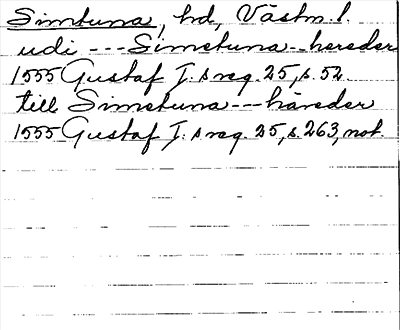 Simtuna, hd, Västm. l.
udi --- Simetuna -- hereder
1555 Gustaf I:s reg. 25, s. 52.
till Simetuna --- häreder
1555 Gustaf I:s reg. 25, s. 263, not.